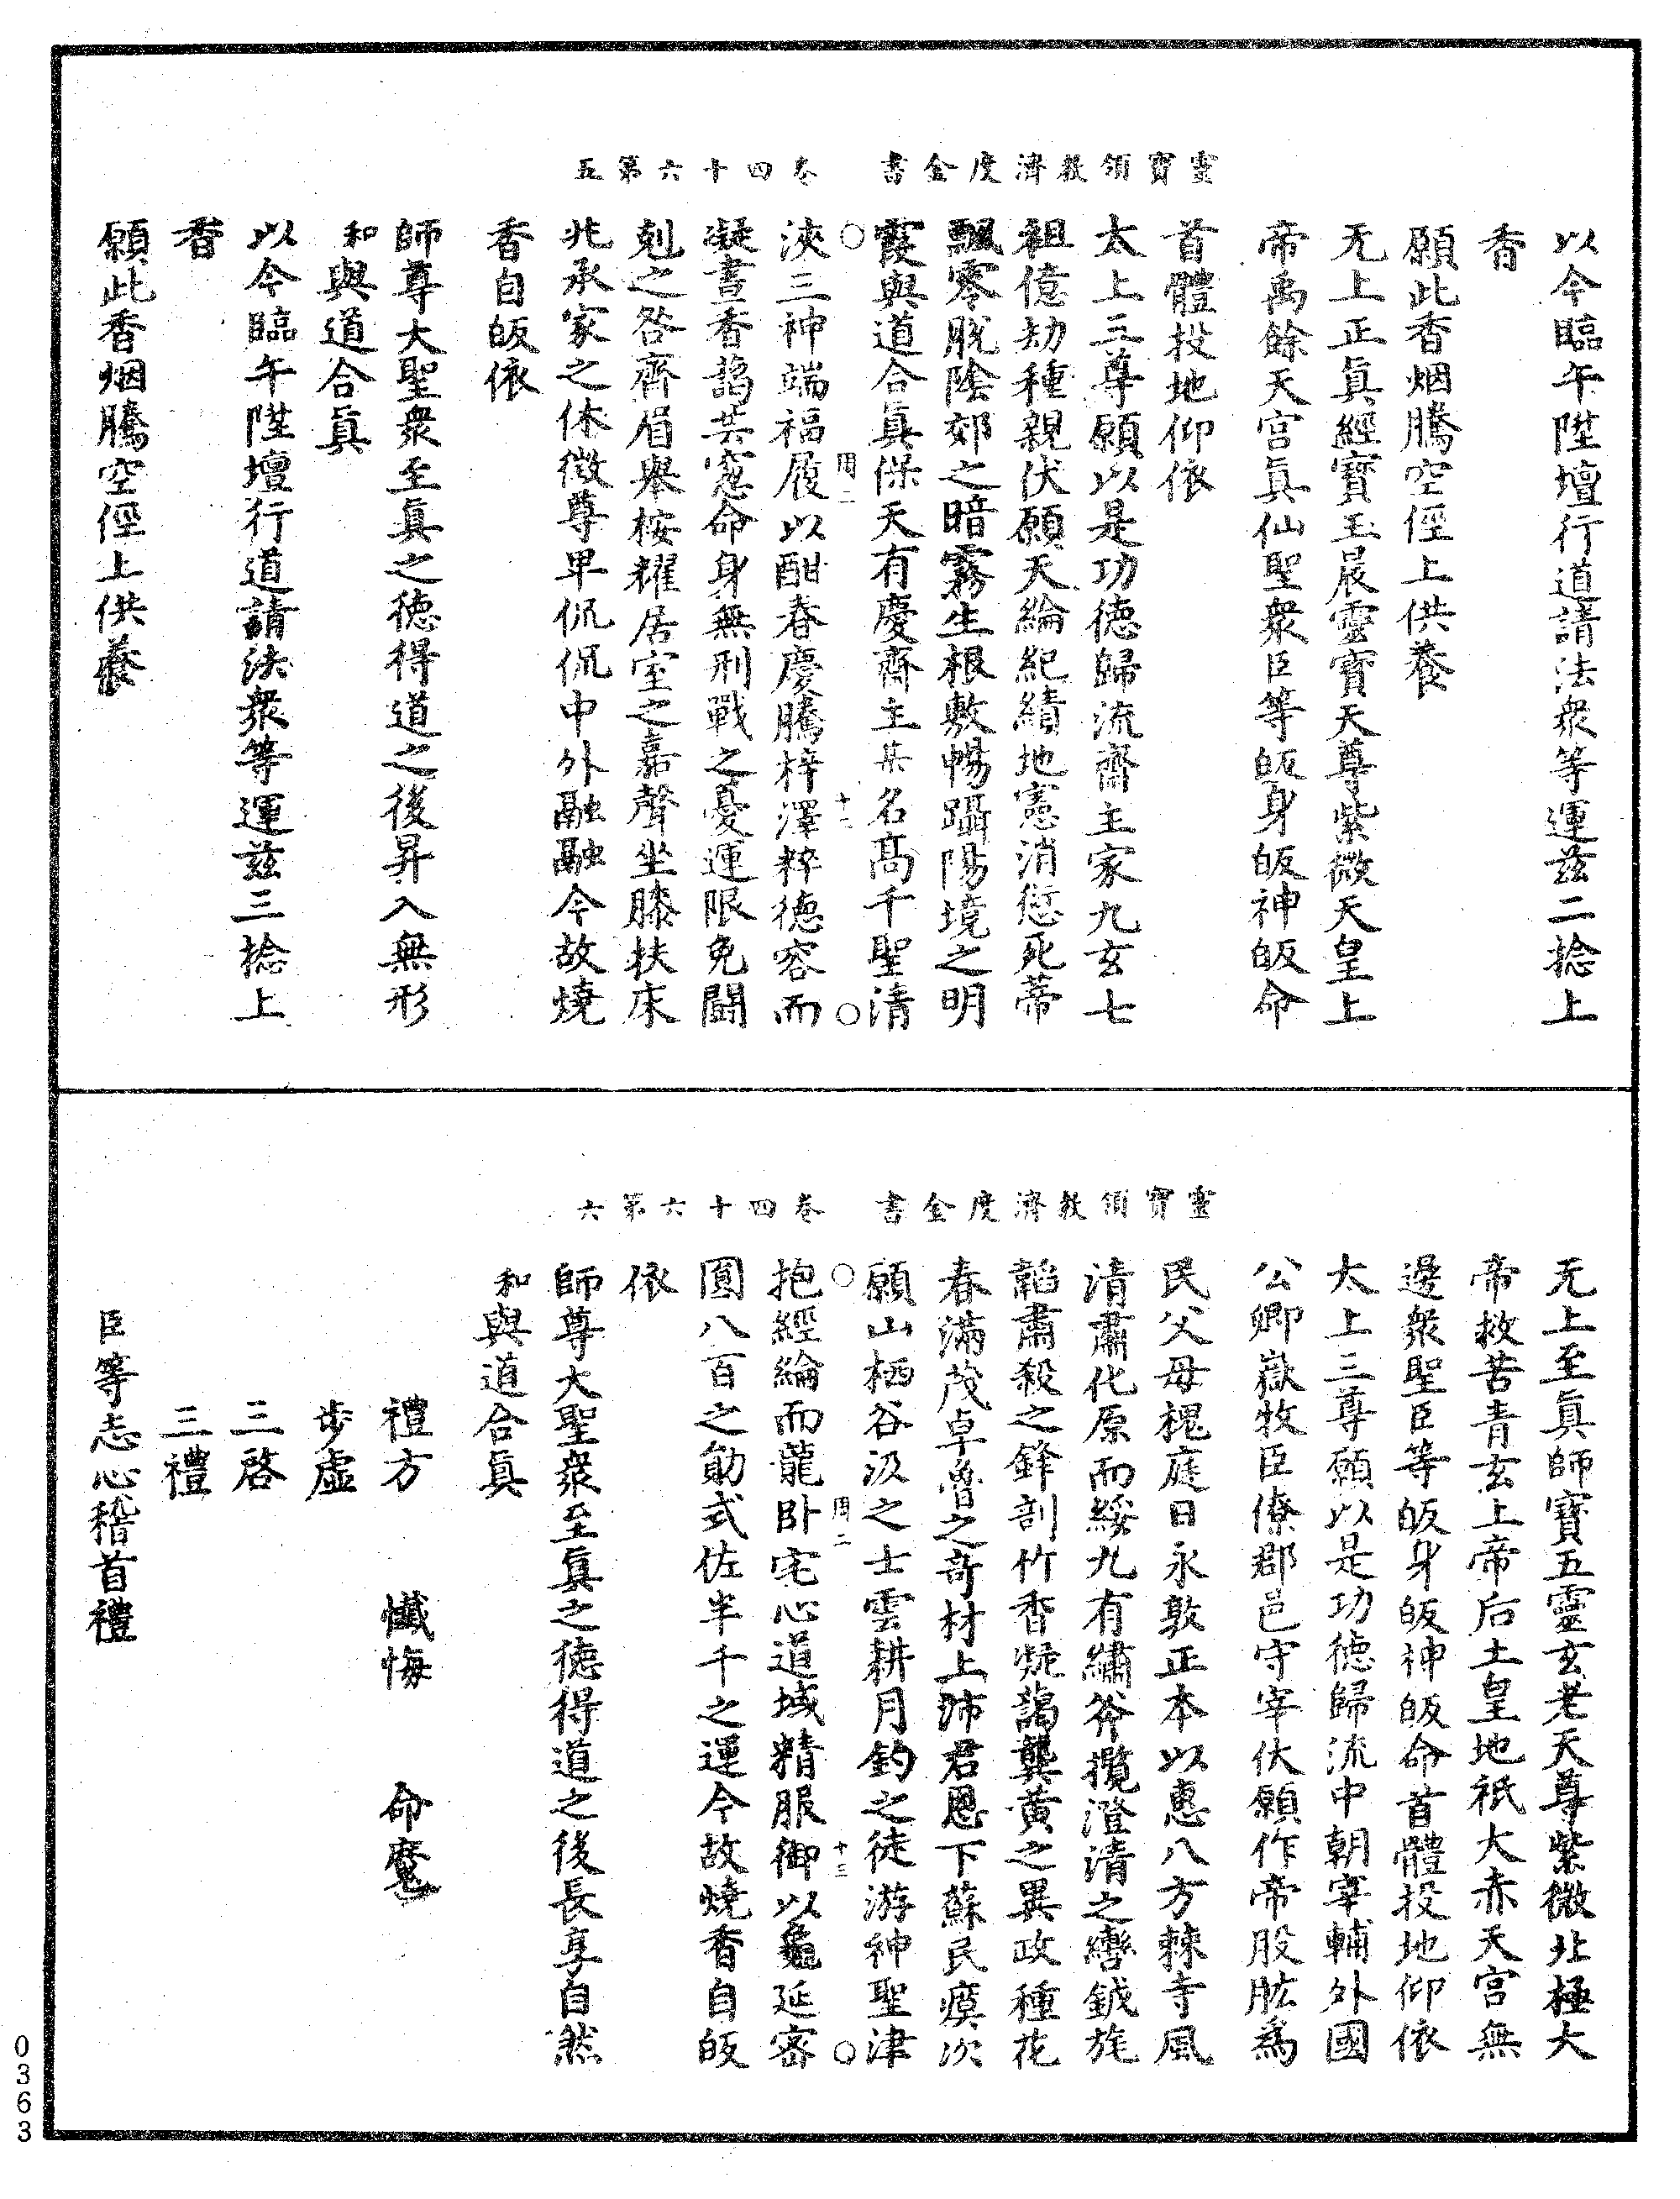 靈寶領教濟度金書　卷四十六第五
以今臨午陞壇行道請法衆等運兹二捻上
香
願此香烟騰空徑上供養
无上正眞經寶玉晨靈寶天尊紫微天皇上
帝禹餘天宫眞仙聖衆臣等皈身皈神皈命
首體投地仰依
太上三尊願以是功德歸流齋主家九玄七
祖億劫種親伏願天綸紀績地憲消愆死蒂
飄零脫陰郊之暗霧生根敷暢躡陽境之明
霞與道合眞保天有慶齋主某名髙千聖清
周二　十二
浹三神端福履以酣春慶騰梓澤粹德容而
凝晝香藹芸窓命身無刑戰之憂運限免鬪
剋之咎齊眉舉桉耀居室之嘉聲坐膝扶床
兆承家之休徵尊卑侃侃中外融融今故燒
香自皈依
師尊大聖衆至眞之德得道之後昇入無形
和與道合眞
以今臨午陞壇行道請法衆等運兹三捻上
香
願此香烟騰空徑上供養
靈寶領教濟度金書　卷四十六第六
无上至眞師寶五靈玄老天尊紫微北極大
帝救苦青玄上帝后土皇地祇大赤天宫無
邊衆聖臣等皈身皈神皈命首體投地仰依
太上三尊願以是功德歸流中朝宰輔外國
公卿嶽牧臣僚郡邑守宰伏願作帝股肱爲
民父母槐庭日永敦正本以惠八方棘寺風
清肅化原而綏九有繡斧攬澄清之轡鉞旄
韜肅殺之鋒剖竹香凝藹龔黄之異政種花
春滿茂卓魯之奇材上沛君恩下蘇民瘼次
願山栖谷汲之士雲耕月釣之徒游神聖津
周二　十三
抱經綸而龍卧宅心道域精服御以龜延密
圓八百之勛式佐半千之運今故燒香自皈
依
師尊大聖衆至眞之德得道之後長享自然
和與道合眞
禮方　懺悔　命魔
步虛
三啓
三禮
臣等志心稽首禮
0363